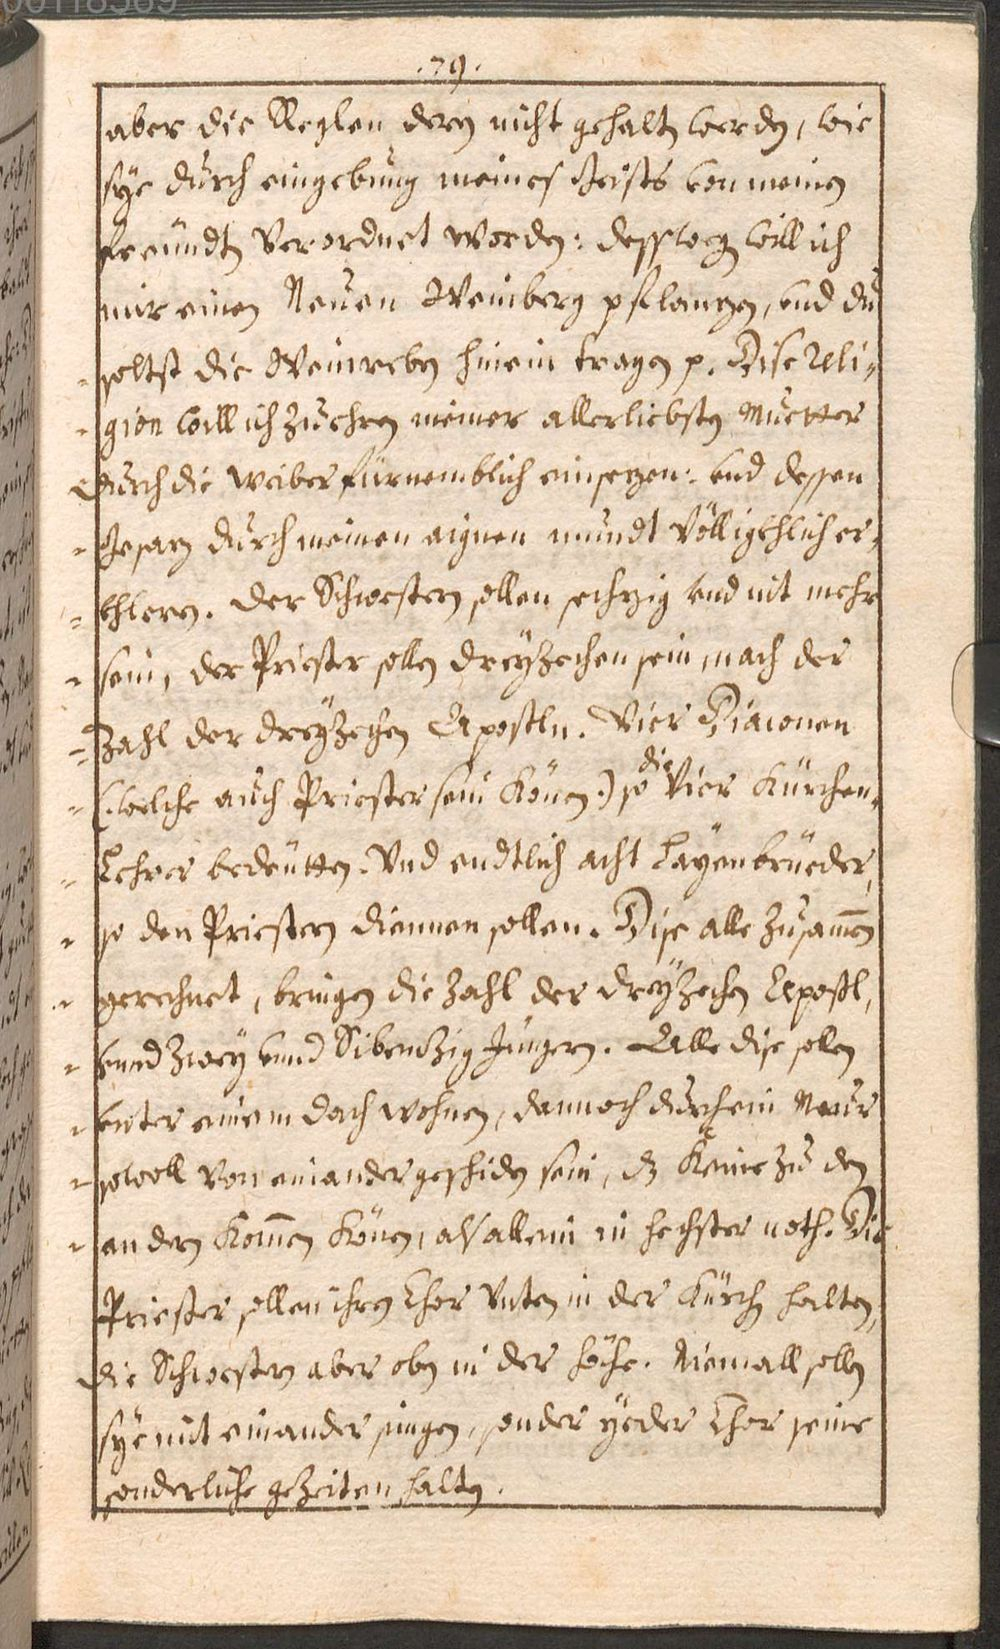 00118569
.79.
aber die Reglen deren nicht gehalten werden, wie
sÿe durch eingebung meines Geists von meinen
freündten verordnet worden: desswegen will ich
mir einen Neuen Weinberg pflantzen, vnd du
soltst die Weinreben hinein tragen p. Dise Reli=
gion will ich zu ehren meiner allerliebsten Muetter
durch die weiber fürnemblich einsetzen: vnd dessen
Gesatz durch meinen aignen mundt völligkhlich er=
khleren. Der Schwestern sollen sechzig vnd nit mehr
sein, der Priester sollen dreÿzechen sein, nach der
Zahl der dreÿzechen Apostln. Vier Diaconen
(: welche auch Priester sein könen :) so die Vier Kürchen=
Lehrer bedeütten. Vnd endtlich acht Laÿenbrüeder,
so den Priestern diennen sollen. Dise alle zusamen
gerechnet, bringen die Zahl der dreÿzechen Apostl,
vnnd zweÿ vnnd Sibenzig Jüngern. Alle dise sollen
vnter einem dach wohnen, dannoch durch ein Maur
sowoll von einander geschiden sein, dz keine zu den
andern komen könen, als allein in hechster noth. Die
Priester sollen ihren Chor vnten in der Kürch halten,
die Schwestern aber oben in der höche. Niemall sollen
sÿe mit einander singen, sonder ÿeder Chor seine
sonderliche gezeiten halten.